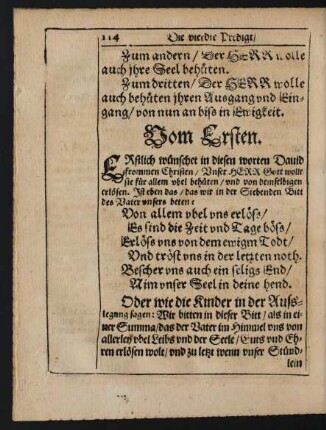 114 Die vierdte Predigt/
Zum andern / Der HERR wolle
auch jhre Seel behüten.
Zum dritten / Der HERR wolle
auch behüten jhren Ausgang vnd Ein-
gang / von nun an biss in Ewigkeit.
Vom Ersten.
ERstlich wünschet in diesen worten Dauid
frommen Christen / Vnser HERR Gott wollt
sie für allem vbel behüten / vnd von demselbigen
erlösen. Ist eben das / das wir in der Siebenden Bitt
des Vater vnsers beten:
Von allem vbel vns erlöss /
Es sind die Zeit vnd Tage böss /
Erlöss vns von dem ewigm Todt /
Vnd tröst vns in der letzten noth.
Bescher vns auch ein seligs End /
Nim vnser Seel in deine hend.
Oder wie die Kinder in der Auss-
legung sagen: Wir bitten in dieser Bitt / als in ei-
ner Summa / das der Vater im Himmel vns von
allerley vbel Leibs vnd der Seele / Guts vnd Eh-
ren erlösen wolt / vnd zu letzt wenn vnser Stünd-
lein